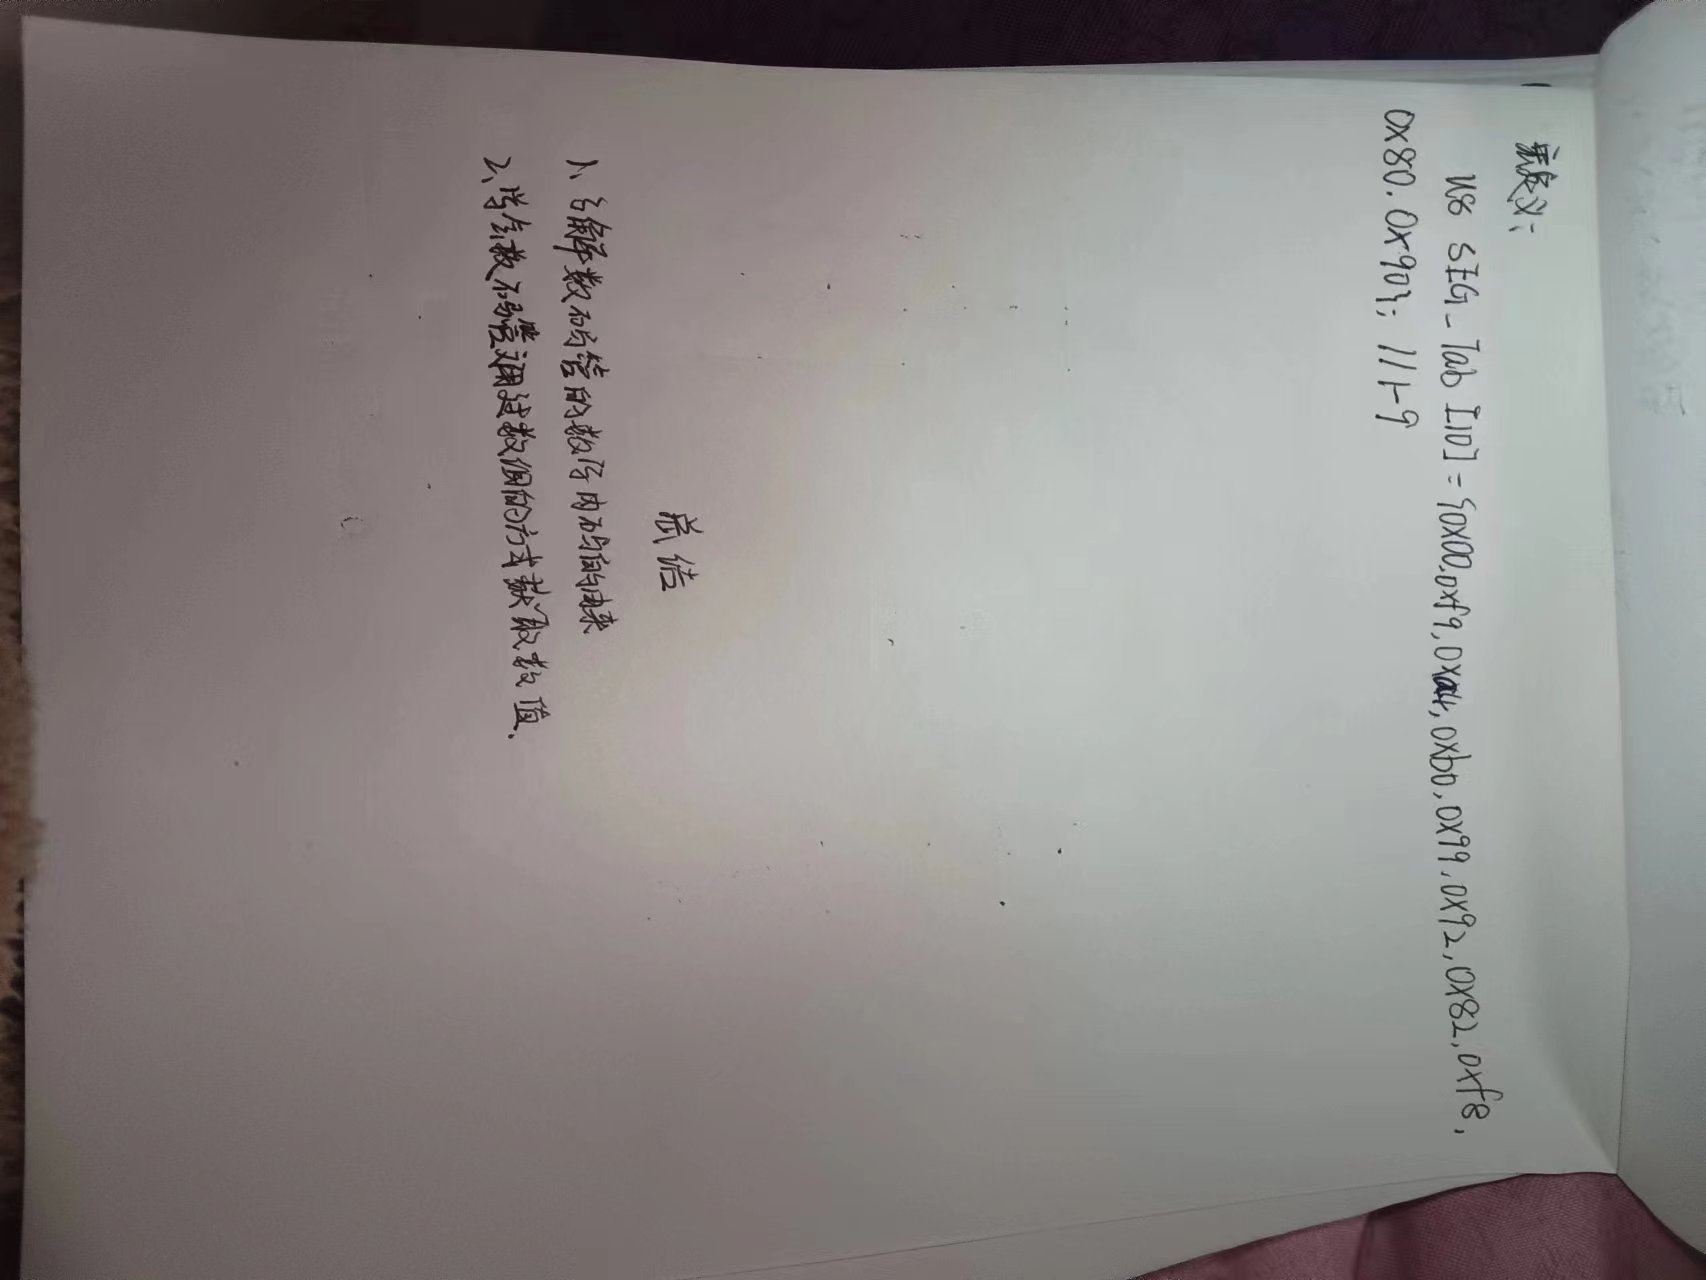 定义：
U8 SEG_Tab [10] = {0x00,0xf9,0xa4,0xb0,0x99,0x92,0x82,0xf8,
0x80.0x90}; //1-9
总结
1、了解数码管的数字内码的由来
2、学会数码管通过数值的方式获取数值.